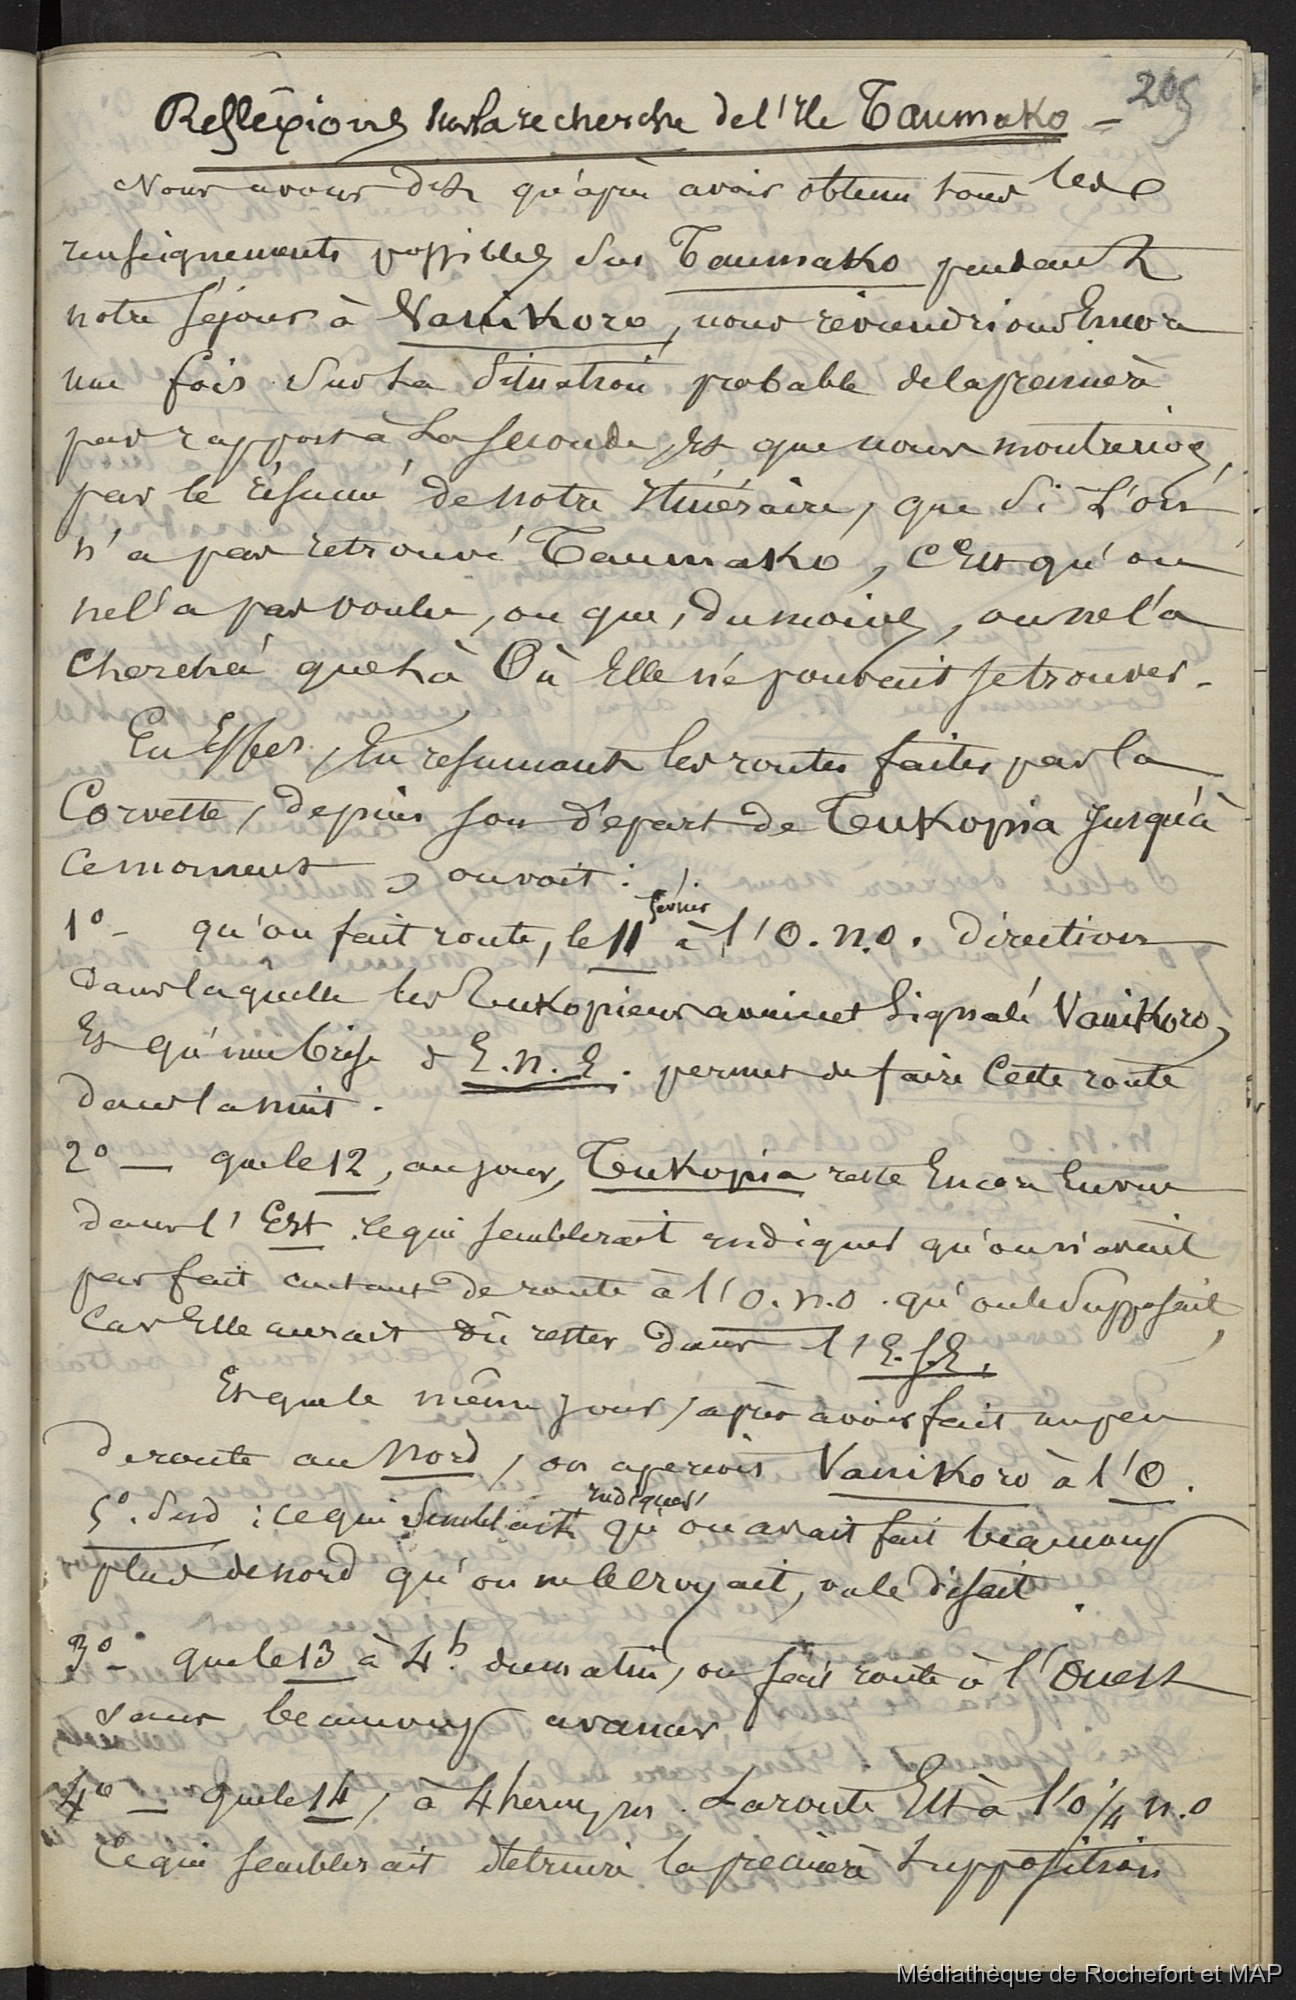 205
Refléxions sur la recherche de l'Ile Taumako -
Nous avons dit qu'après avoir obtenu tous les
renseignements possibles sur Taumako pendant
notre séjour à Vanikoro, nous reviendrions Encore
une fois sur la situation probable de la première
par rapport à La seconde, Et que nous montrerions,
par le résumé de notre Itinéraire, que si L'on
n'a pas retrouvé Taumako, c'Est qu'on
ne l'a pas voulu, ou que, du moins, on ne l'a
cherchée que là Où Elle ne pouvait se trouver.
En Effet, En resumant les routes faites par la
Corvette, depuis son départ de Tukopia Jusqu'à
ce moment, on voit :
1° - qu'on fait route, le 11 février à l'O.N.O. direction
dans laquelle les Tukopiens avaient signalé Vanikoro,
Et qu'une brise d'E.N.E. permet de faire Cette route
dans la nuit.
2° - que le 12, au jour, Tukopia reste Encore En vue
dans l'Est. ce qui semblerait indiquer qu'on n'avait
pas fait autant de route à l'O.N.O. qu'on le supposait,
Car Elle aurait dû rester dans l'E.S.E.
Et que le même jour, après avoir fait un peu
de route au Nord, on aperçoit Vanikoro à l'O.
5°. Sud : ce qui semblait indiquer qu'on avait fait beaucoup
plus de nord qu'on ne le croyait, ou le disait.
3° - que le 13 à 4h. du matin, on fait route à l'Ouest
sans beaucoup avancer
4° - Que le 14, à 4 heures, La route Est à l'O 1/4 N.O
Ce qui semblerait détruire la première supposition
Médiathèque de Rochefort et MAP